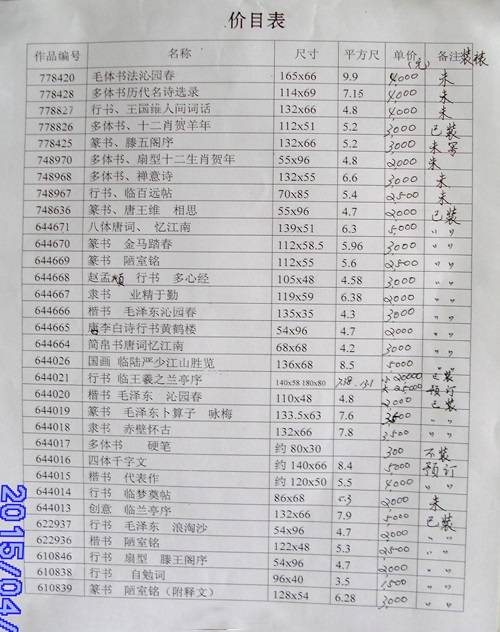 价目表
作品编号 名称 尺寸 平方尺 单价(元) 备注装裱
778420 毛体书法沁园春 165x66 9.9 4,000 未
778428 多体书历代名诗选录 114x69 7.15 4,000 未
778827 行书、王国维人间词话 132x66 4.8 4,000 未
778826 多体书、十二肖贺羊年 112x51 5.2 3,000 已装
778425 篆书、滕王阁序 132x66 5.2 3,000 未写
748970 多体书、扇型十二生肖贺年 55x96 4.8 2000 未
748968 多体书、禅意诗 132x55 6.6 3,000 未
748967 行书、临百远帖 70x85 5.4 2500 未
748636 篆书、唐王维 相思 55x96 4.7 2000 已装
644671 八体唐词、忆江南 139x51 6.3 5,000 〃 〃
644670 篆书 金马踏春 112x58.5 5.96 3,000 〃 〃
644669 篆书 陋室铭 112x55 5.6 2500 〃 〃
644668 赵孟頫 行书 多心经 105x48 4.58 3000 〃 〃
644667 隶书 业精于勤 119x59 6.38 2000 〃 〃
644666 楷书 毛泽东沁园春 135x35 4.3 3000 〃 〃
644665 唐李白诗行书黄鹤楼 54x96 4.7 2000 〃 〃
644664 简帛书唐词忆江南 68x68 4.2 3000 〃 〃
644026 国画 临陆严少江山胜览 136x68 8.5 5000 〃 〃
644021 行书 临王羲之兰亭序 140x58 180x80 20000 已装
644020 楷书 毛泽东 沁园春 110x48 4.8 2,000 预订 已装
644019 篆书 毛泽东卜算子 咏梅 133.5x63 7.6 3500 〃 〃
644018 隶书 赤壁怀古 132x66 7.8 3500 〃 〃
644017 多体书 硬笔 约 80x30 300 不装
644016 四体千字文 约 140x66 8.4 5000 预订
644015 楷书 代表作 约 120x50 5.5 4000 〃 〃
644014 行书 临梦奠帖 86x68 5.3 2000 未
644013 创意 临兰亭序 132x66 7.9 5000 已装
622937 行书 毛泽东 浪淘沙 54x96 4.7 2000 〃 〃
622936 楷书 陋室铭 122x48 5.3 2500 〃 〃
610846 行书 扇型 滕王阁序 54x96 4.7 2000 〃 〃
610838 行书 自勉词 96x40 3.5 1500 〃 〃
610839 篆书 陋室铭（附释文） 128x54 6.28 3000 〃 〃
2015/04/